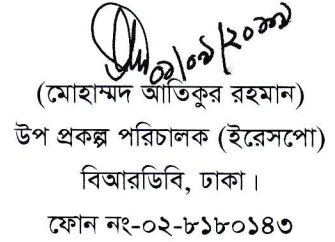 ০১/০৯/২০১১
(মোহাম্মদ আতিকুর রহমান)
উপ প্রকল্প পরিচালক (ইরেসপো)
বিআরডিবি, ঢাকা।
ফোন নং-০২-৮১৮০১৪৩